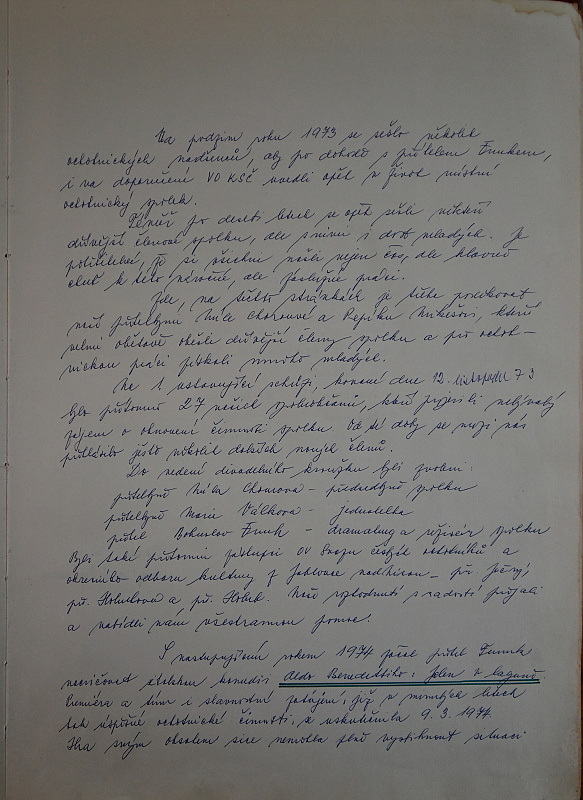 Na podzim roku 1973 se sešlo několik
ochotnických nadšenců, aby po dohodě s přítelem Funkem,
i na doporučení VO KSČ uvedli opět v život místní
ochotnický spolek.
Téměř po deseti letech se opět sešli někteří
dřívější členové spolku, ale s nimi i dost mladých. Je
potěšitelné, že si všichni našli nejen čas, ale hlavně
chuť k této náročné, ale záslužné práci.
Zde, na těchto stránkách je třeba poděkovat
naší přítelkyni Míle Chourové a Pepíku Mikešovi, kteří
velmi obětavě obešli dřívější členy spolku a pro ochot-
nickou práci získali mnoho mladých.
Na 1. ustavující schůzi, konané dne 12. listopadu 73
bylo přítomno 27 našich spoluobčanů, kteří projevili nebývalý
zájem o obnovení činnosti spolku. Od té doby se mezi nás
přihlásilo ještě několik dalších nových členů.
Do vedení divadelního kroužku byli zvoleni:
přítelkyně Míla Chourová - předsedkyně spolku
přítelkyně Marie Válková - jednatelka
přítel Bohuslav Funk - dramaturg a režisér spolku
Byli také přítomni zástupci OV Svazu českých ochotníků a
okresního odboru kultury z Jablonce nad Nisou - př.
př. Holubová a př. Naše rozhodnutí s radostí přijali
a nabídli nám všestrannou pomoc.
S nastupujícím rokem 1974 začal přítel Funk
nacvičovat italskou komedii Aldo Benedettiho: Jeden z laguně.
Premiéra a tím i slavnostní zahájení, již v minulých letech
tak úspěšné ochotnické činnosti, se uskutečnila 9. 3. 1974.
Hra svým obsahem sice nemohla plně vystihnout situaci